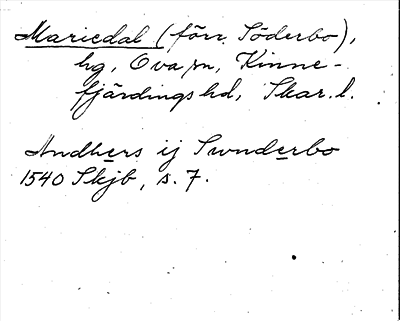 Mariedal (förr Söderbo),
hg, Ova sn, Kinne-
fjärdings hd, Skar. l.
Andhers ij Swnderbo
1540 Skjb, s. 7.